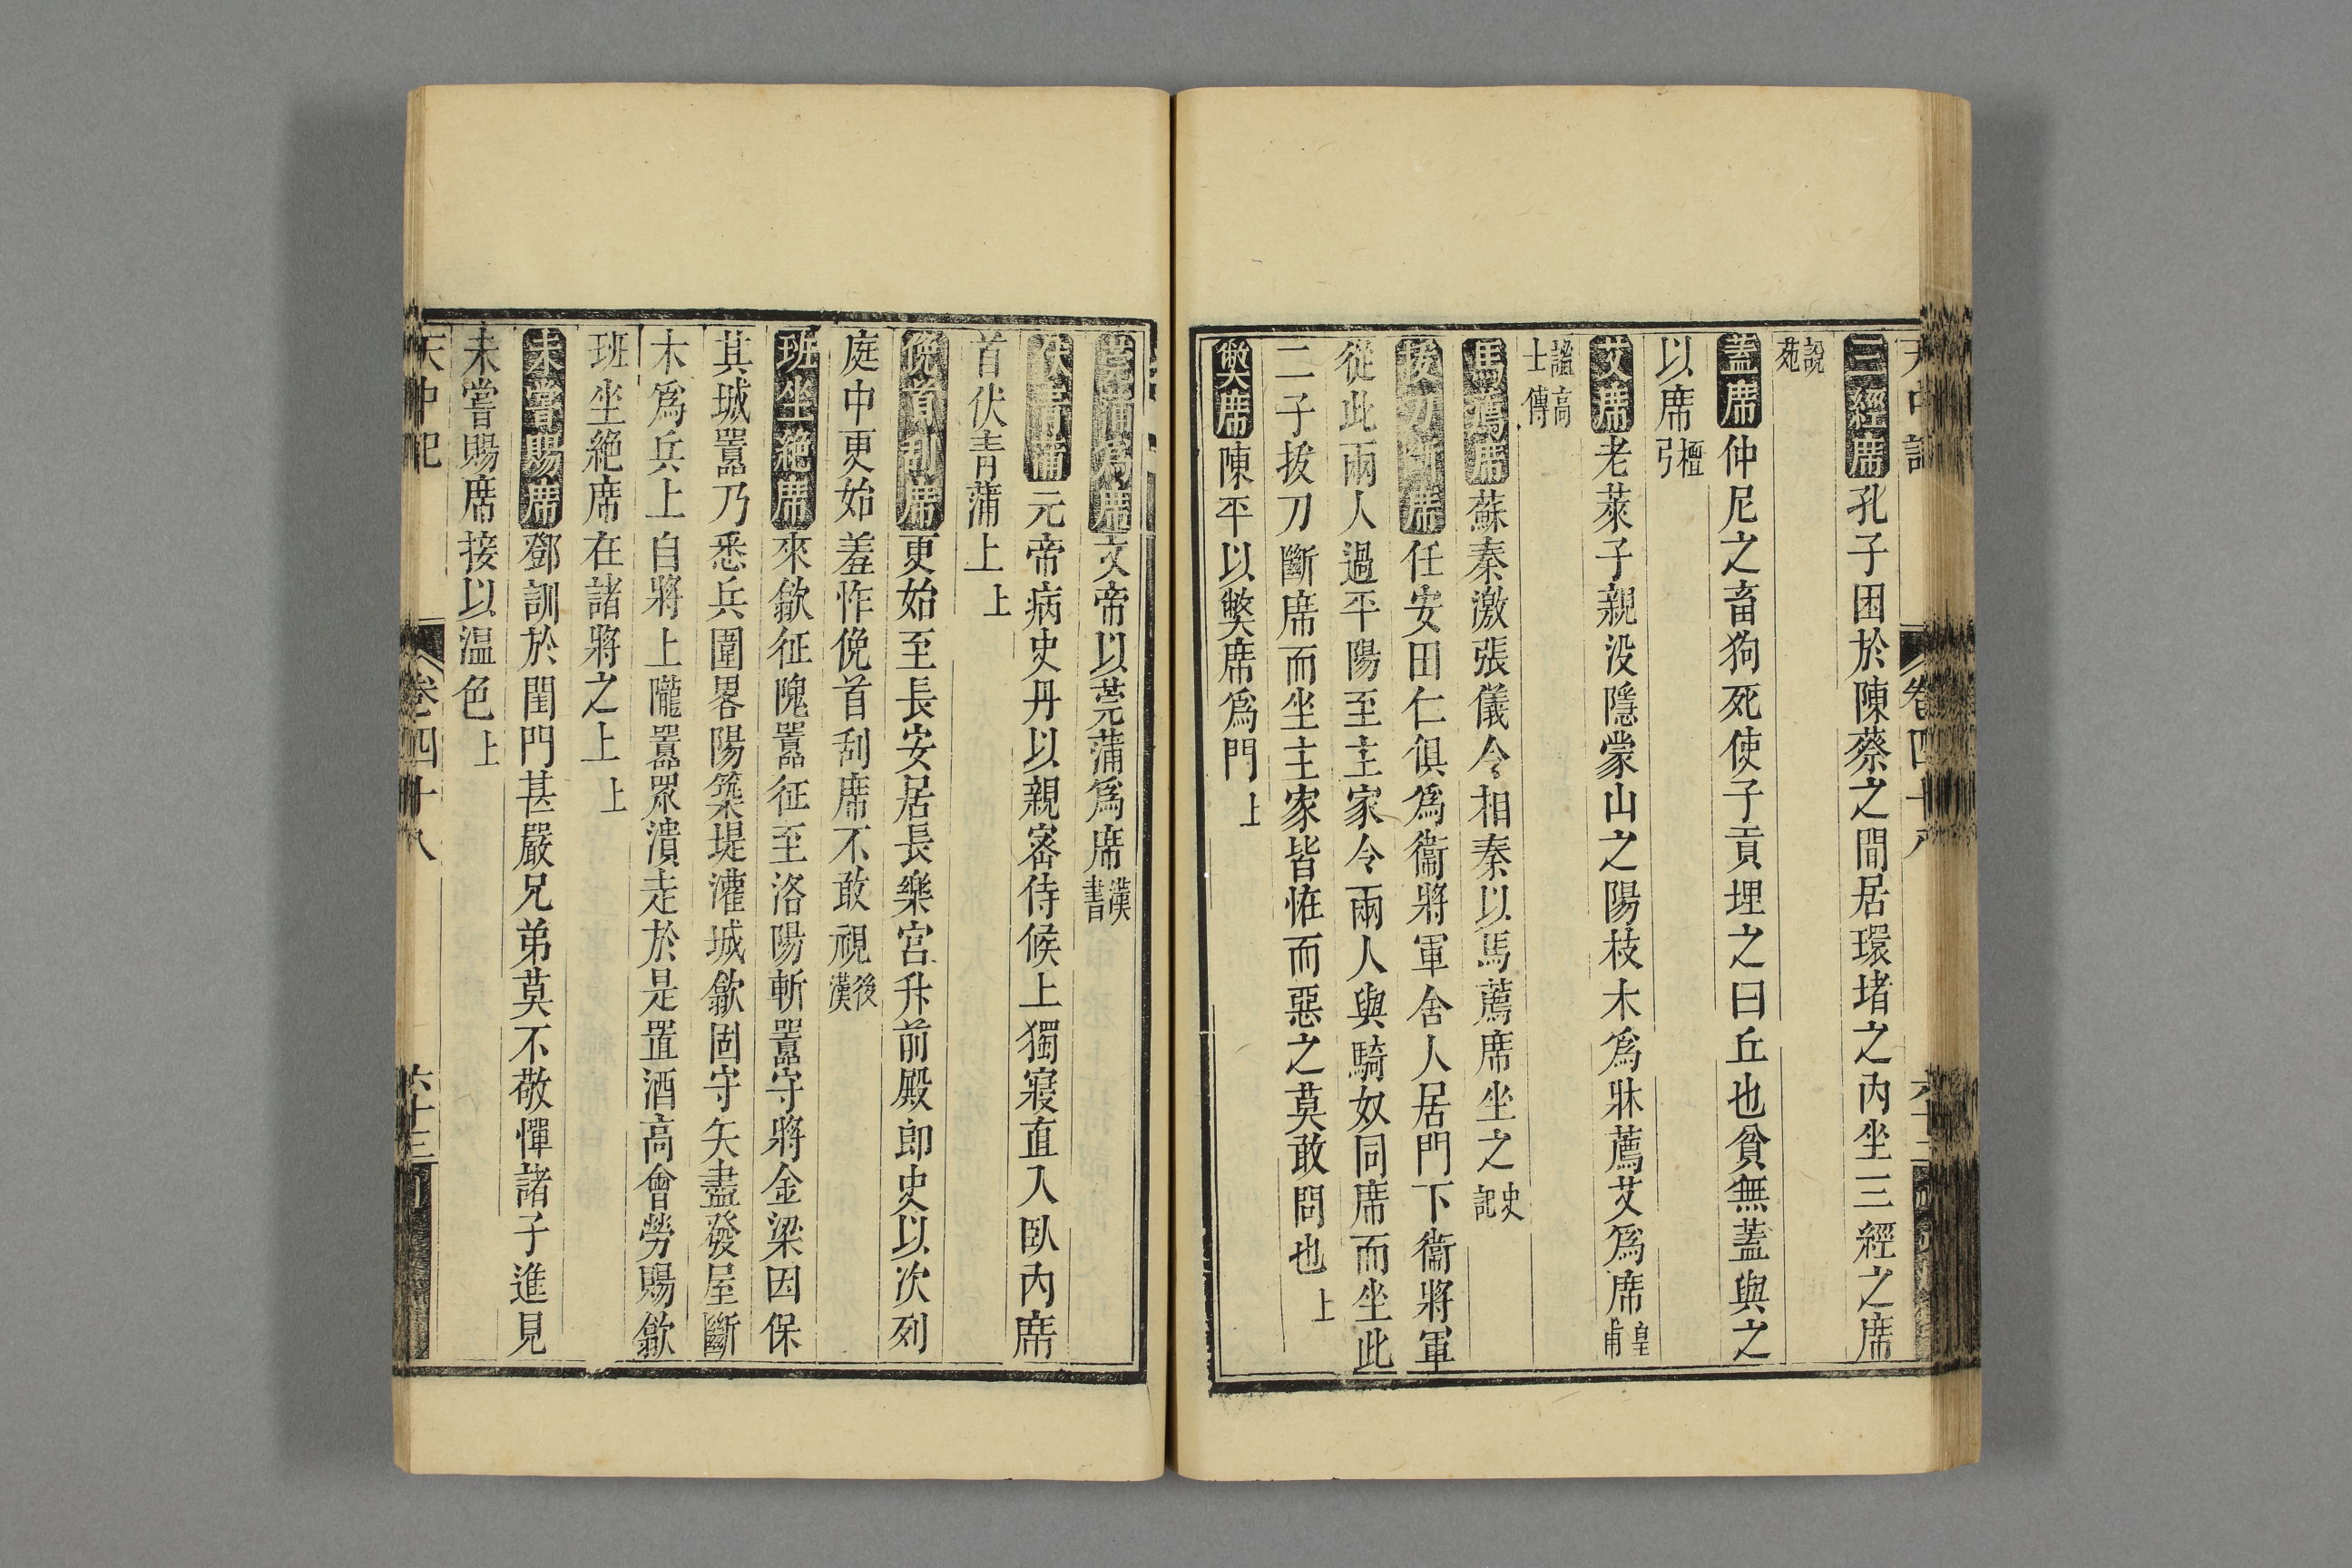 三經席孔子困於陳蔡之間居環堵之內坐三經之席
說苑
蓋席仲尼之畜狗死使子貢埋之曰丘也貧無蓋與之
以席檀弓
艾席老萊子親没隱蒙山之陽枝木爲牀薦艾爲席皇甫
謐高士傳
馬薦席蘇秦激張儀令相秦以馬薦席坐之史記
拔刀斷席任安田仁俱爲衞將軍舍人居門下衞將軍
從此兩人過平陽至主家令兩人與騎奴同席而坐此
二子拔刀斷席而坐主家皆恠而惡之莫敢問也上
獘席陳平以獘席爲門上
莞蒲爲席文帝以莞蒲爲席漢書
伏青蒲元帝病史丹以親宻侍候上獨寢直入臥內席
首伏青蒲上上
俛首刮席更始至長安居長樂宮升前殿郎史以次列
庭中更始羞怍俛首刮席不敢視後漢
班坐絶席來歙征隗囂征至洛陽斬囂守將金梁因保
其城囂乃悉兵圍畧陽築堤灌城歙固守矢盡發屋斷
木爲兵上自將上隴囂眾潰走於是置酒高會勞賜歙
班坐絶席在諸將之上上
未嘗賜席鄧訓於閨門甚嚴兄弟莫不敬憚諸子進見
未嘗賜席接以温色上
天中記 卷四十八 六十三